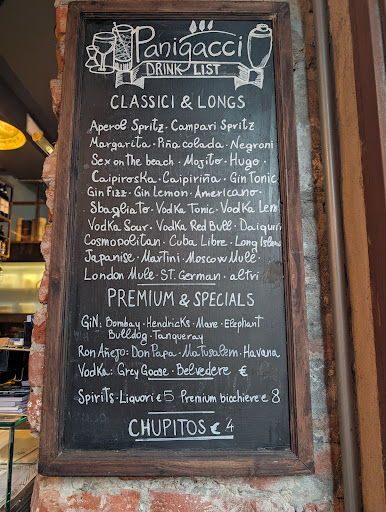 Panigacci
DRINK LIST
CLASSICI & LONGS
Aperol Spritz · Campari Spritz
Margarita · Piña colada · Negroni
Sex on the beach · Mojito · Hugo ·
Caipiroska · Caipiriña · Gin Tonic
Gin Fizz · Gin Lemon · Americano ·
Sbagliato · Vodka Tonic · Vodka Lem
Vodka Sour · Vodka Red Bull · Daiquir
Cosmopolitan · Cuba Libre · Long Islan
Japanise · Martini · Moscow Mule ·
London Mule · ST. German · altri
PREMIUM & SPECIALS
GIN: Bombay · Hendricks · Mare · Elephant
Bulldog · Tanqueray
Ron Añejo: Don Papa · Matusalem · Havana
Vodka: Grey Goose · Belvedere €
Spirits · Liquori €5 Premium bicchiere € 8
CHUPITOS € 4